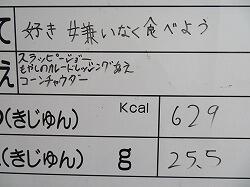 て 好き嫌いなく食べよう
え スラッピージョー
もやしのカレードレッシングあえ
コーンチャウダー
Kcal
(きじゅん) 629
(きじゅん) g 25.5